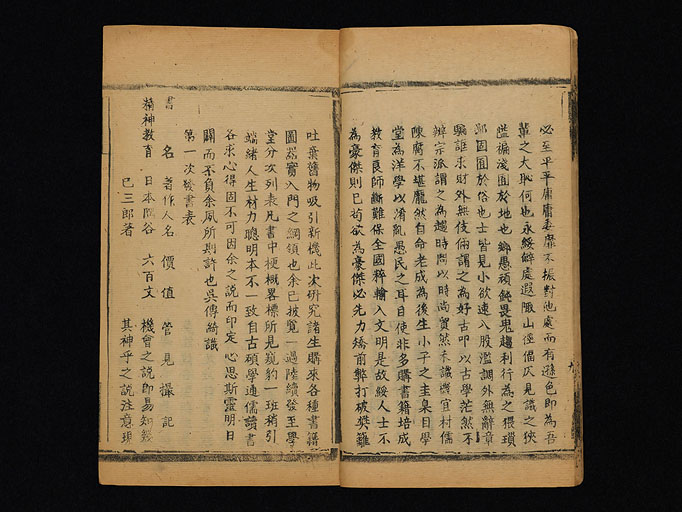 必至平平庸庸委靡不振對他處而有遜色即為吾
輩之大恥何也永綏僻處遐陬山徑倡仄見識之狹
隘褊淺囿於地也鄉愚頑飩畏鬼趨利行為之猥瑣
鄙固囿於俗也士皆見小欲速八股濫調外無辭章
騙誑求財外無伎倆謂之為好古叩以古學茫然不
辦宗派謂之為趨時問以時尚貿然不識機宜村儒
陳腐不堪龐然自命老成為後生小子之圭臬目學
堂為洋學以淆亂愚民之耳目使非多購書籍培成
教育良師斷難保全國粹輸入文明是故綏人士不
為豪傑則已苟欲為豪傑必先力矯前弊打破樊籬
吐棄舊物吸引新機此次研究諸生購來各種書籍
圖器實入門之綱領也余已披覽一過陸續發至學
堂分次列表凡書中梗概畧標所見窺豹一班稍引
端緒人生材力聰明本不一致自古碩學通儒讀書
各求心得固不可因余之說而印定心思斯靈明日
闢而不負余夙所期許也吳傳綺識
第一次發書表
書名 著作人名 價值 管見撮記
精神教育 日本隈谷 六百文 機會之說即易知幾
巳三郎著 其神乎之說注意環